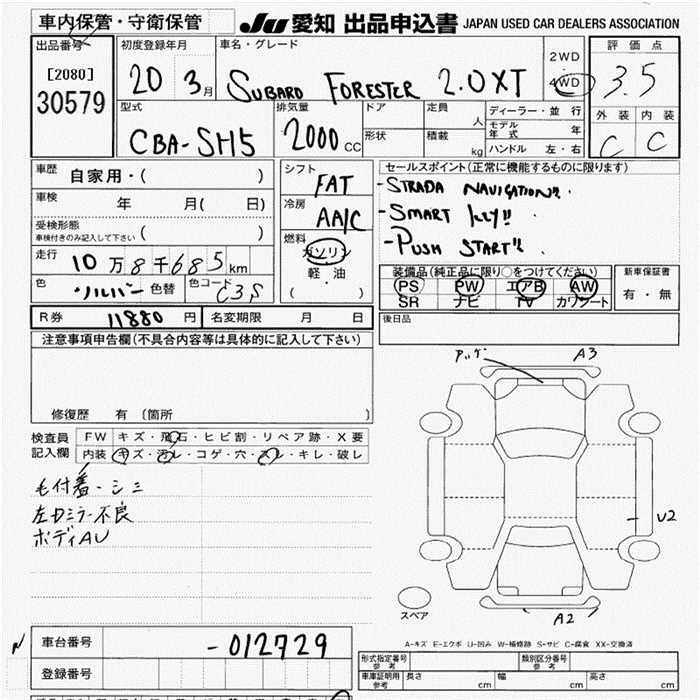 車内保管・守衛保管
JU 愛知 出品申込書 JAPAN USED CAR DEALERS ASSOCIATION
出品番号
[2080]
30579
初度登録年月
20 3月
車名・グレード
SUBARU FORESTER 2.0XT
2WD
・
4WD
評価点
3.5
外装 内装
C C
型式
CBA-SH5
排気量
2000 CC
ドア
形状
定員 人
積載 kg
ディーラー・並行
モデル年式 年
ハンドル 左・右
車歴 自家用・( )
車検 年 月( 日)
受検形態
車検付きのみ記入して下さい ( )
走行 10万8千685km
色 シルバー 色替 色コード C3S
シフト FAT
冷房 AA/C
燃料
ガソリン
軽・油
( )
セールスポイント(正常に機能するものに限ります)
-STRADA NAVIGATION!!.
-SMART KEY!! .
-PUSH START!!.
装備品(純正品に限り○をつけてください)
PS PW エアB AW
SR ナビ TV カワシート
新車保証書
有・無
R券 11880 円 名変期限 月 日
後日品
注意事項申告欄(不具合内容等は具体的に記入して下さい)
修復歴 有 〔箇所 〕
検査員記入欄
FW キズ・飛石・ヒビ割・リペア跡・X要
内装 キズ・汚レ・コゲ・穴・スレ・キレ・破レ
毛付着・シミ
左Dミラー不良
ボディAU
A3
U2
A2
スペア
A-キズ E-エクボ U-凹み W-補修跡 S-サビ C-腐食 XX-交換済
車台番号 -012729
登録番号
形式指定番号 参考
類別区分番号 参考
車庫証明用 参考 長さ cm 幅 cm 高さ cm